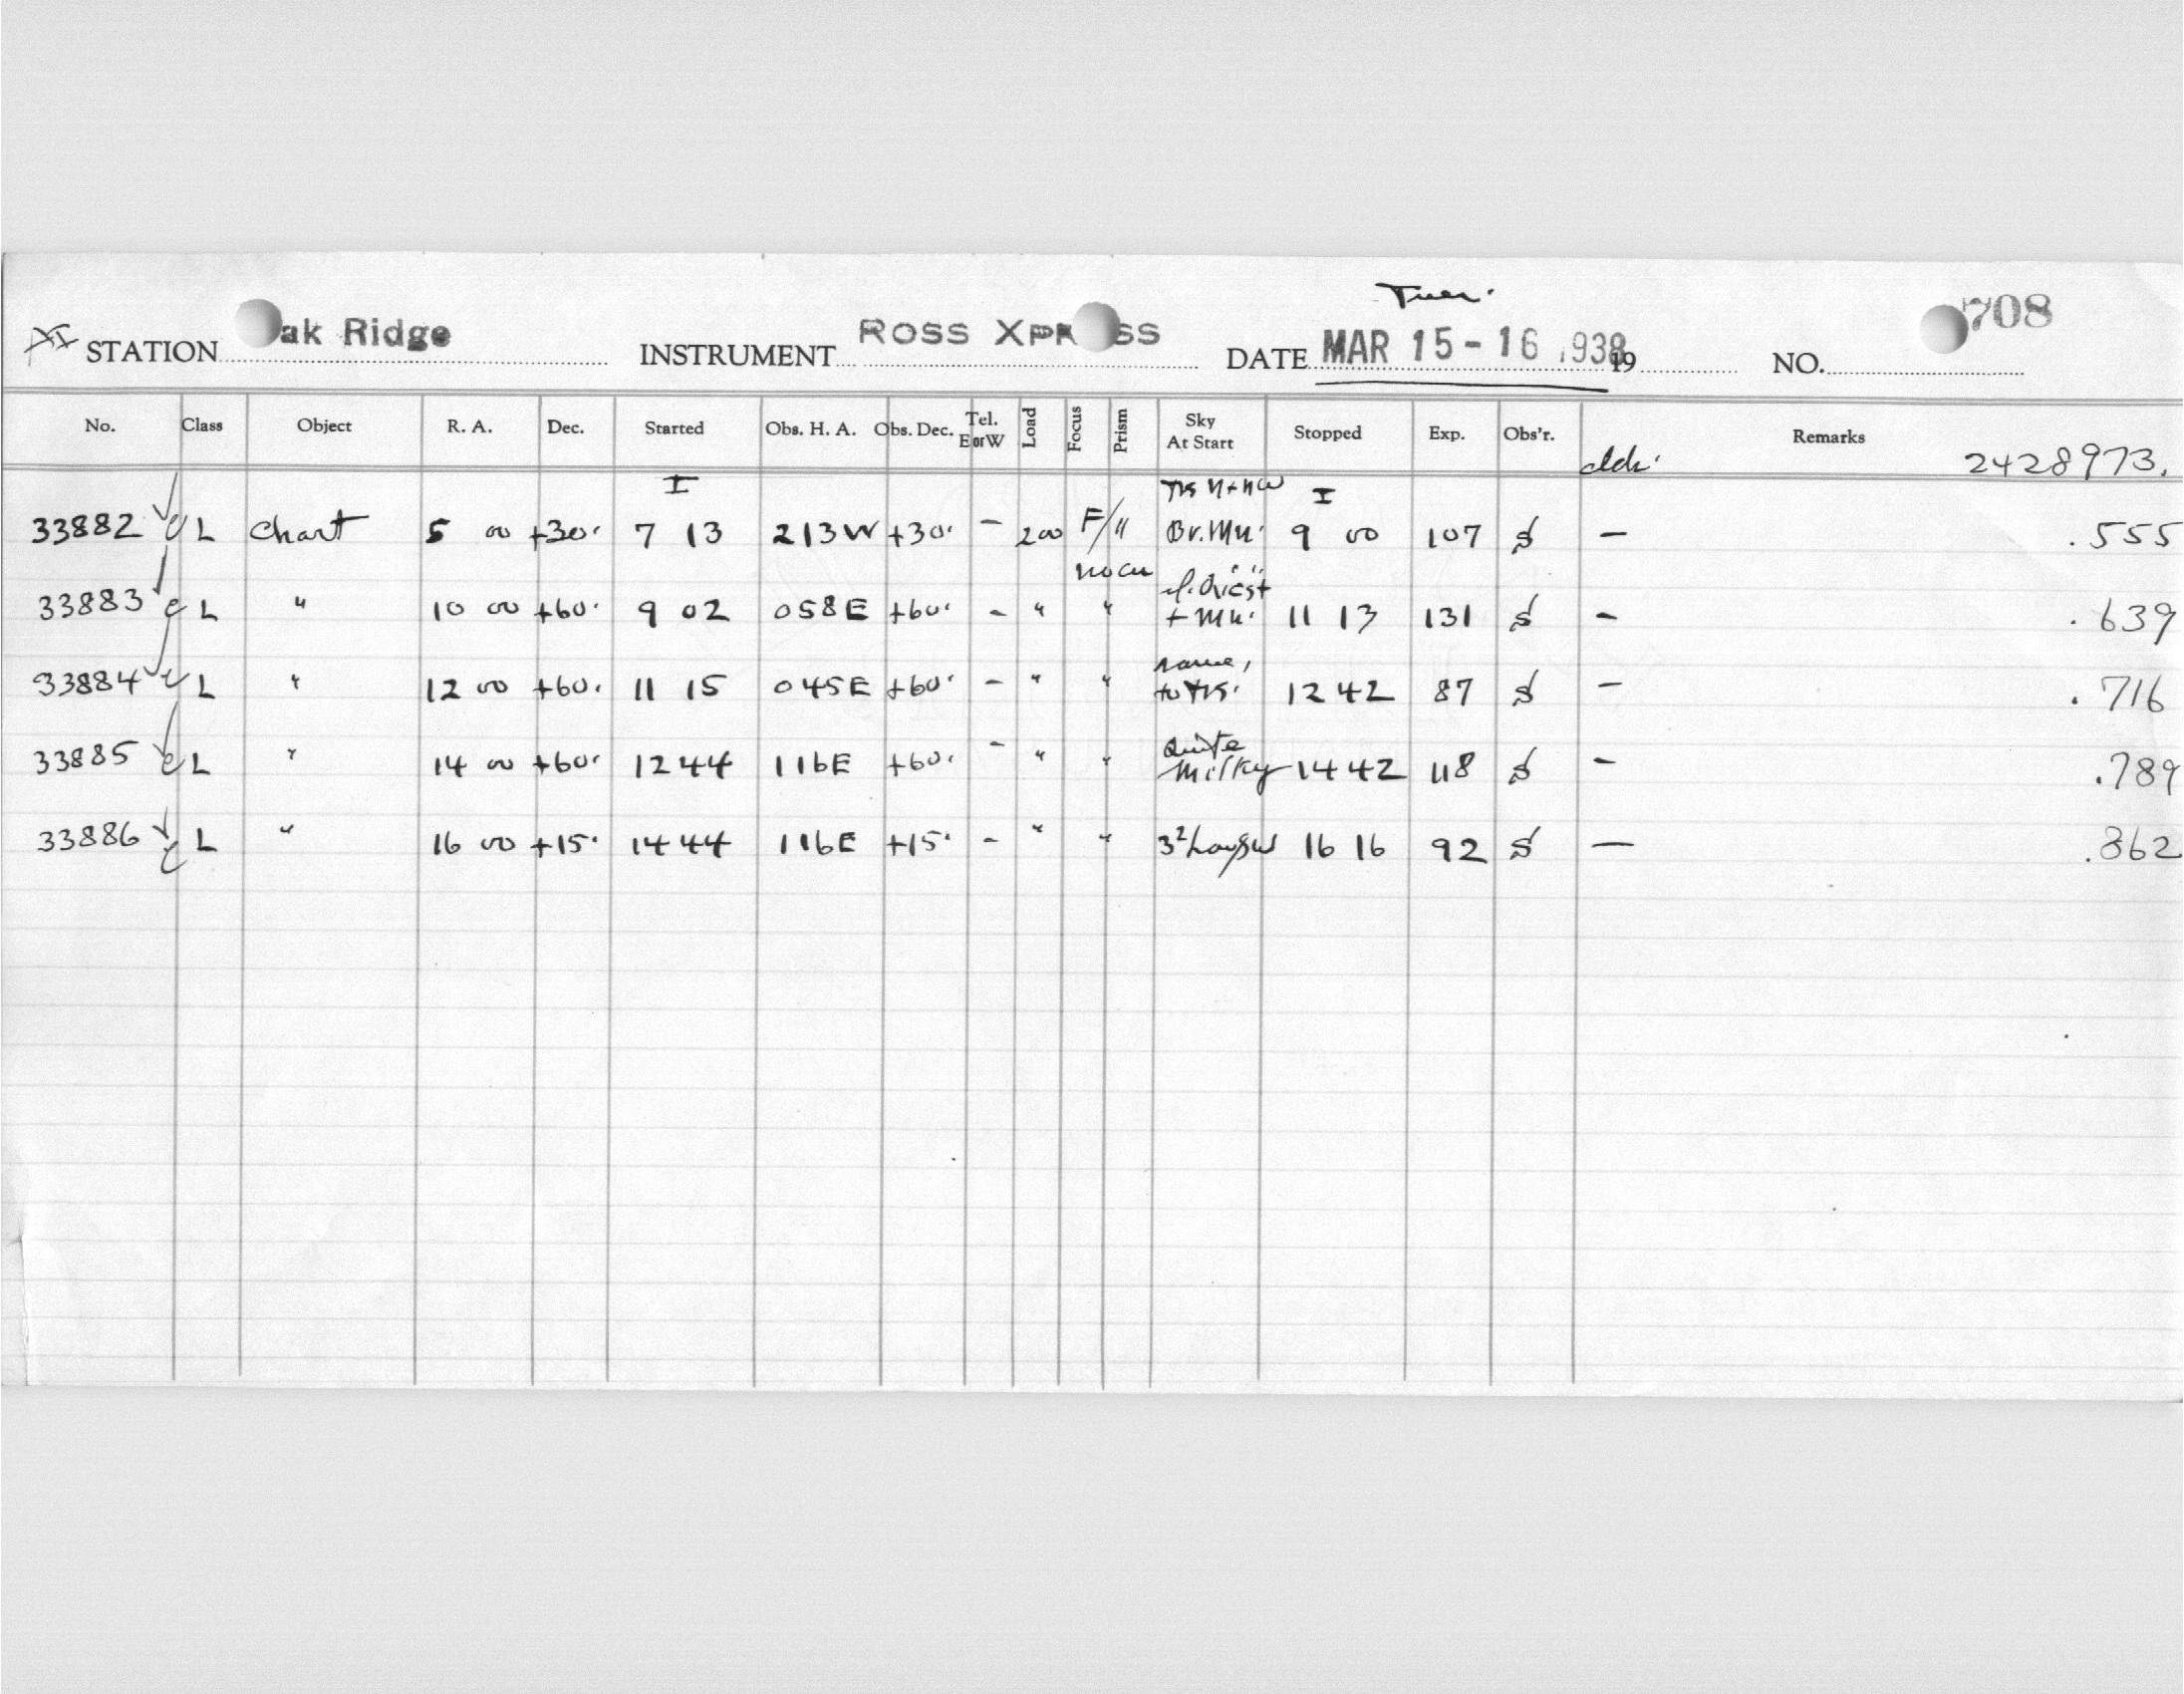 Tues.
XI STATION ak Ridge INSTRUMENT ROSS XPR SS DATE MAR 15-16 1938 19 NO. 708
No. Class Object R. A. Dec. Started Obs. H. A. Obs. Dec. Tel. E or W Load Focus Prism Sky At Start Stopped Exp. Obs'r. Remarks
2428973.
I I
33882 L Chart 5 00 +30. 7 13 213W +30. - 200 F/" Br. Mn. 9 00 107 S — .555
33883 L " 10 00 +60. 9 02 058E +60. - " " + Mn. 11 13 131 S - .639
same,
33884 L " 12 00 +60. 11 15 045E +60. - " " to 12 42 87 S - .716
Quite
33885 L " 14 00 +60. 12 44 116E +60. - " " Milky 14 42 118 S - .789
33886 L " 16 00 +15. 14 44 116E +15. - " " 16 16 92 S — .862